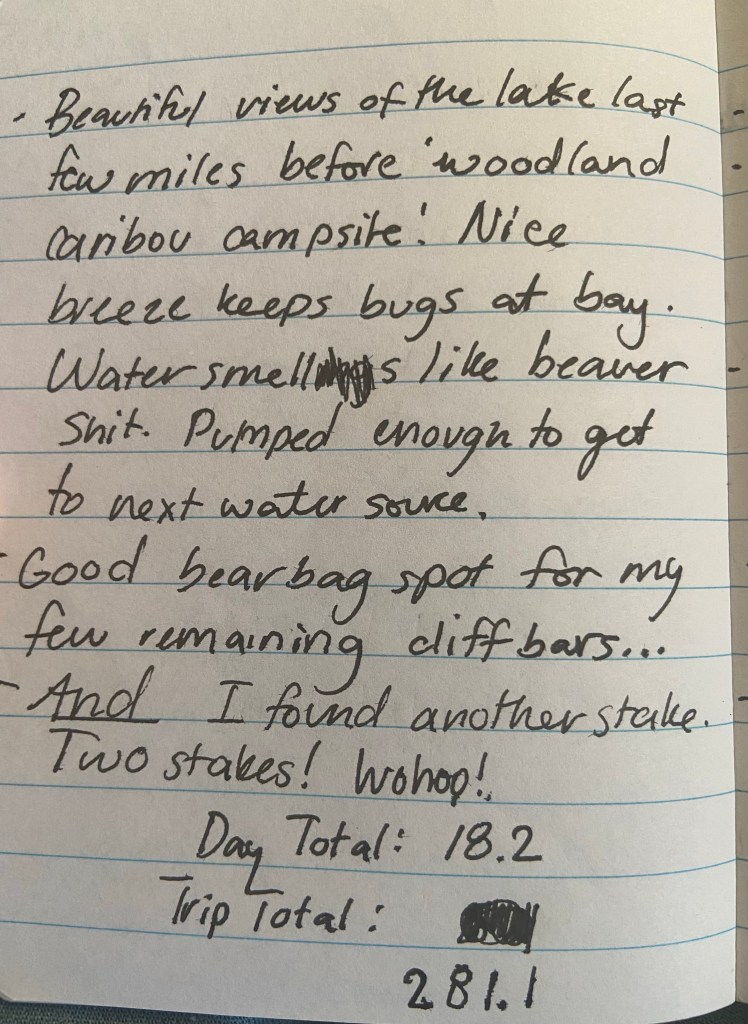 - Beautiful views of the lake last
few miles before 'woodland
caribou campsite'. Nice
breeze keeps bugs at bay.
Water smells like beaver
shit. Pumped enough to get
to next water source.
- Good bear bag spot for my
few remaining cliff bars...
- And I found another stake.
Two stakes! Wohoo!
Day Total: 18.2
Trip Total:
281.1